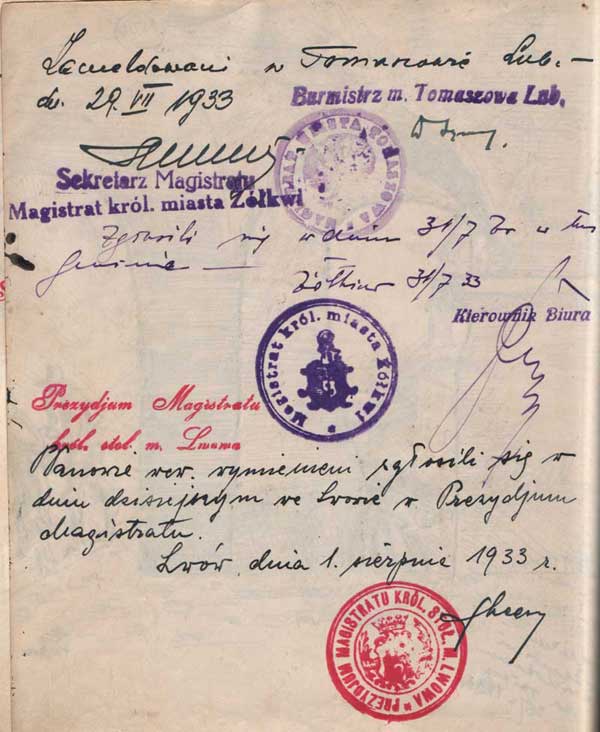 Zameldowani w Tomaszowie Lub. –
dn. 29. VII 1933
Burmistrz m. Tomaszowa Lub.
MAGISTRAT MIASTA TOMASZOWA
Sekretarz Magistratu
Magistrat król. miasta Żółkwi
Zgłosili się w dniu 31/7 w
gminie —
Żółkiew 31/7 33
Kierownik Biura
Magistrat król. miasta Żółkwi
Prezydjum Magistratu
król. stoł. m. Lwowa
Panowie wew. wymienieni zgłosili się w
dniu dzisiejszym we Lwowie w Prezydjum
Magistratu.
Lwów, dnia 1. sierpnia 1933 r.
PREZYDJUM MAGISTRATU KRÓL. STOŁ. M. LWOWA